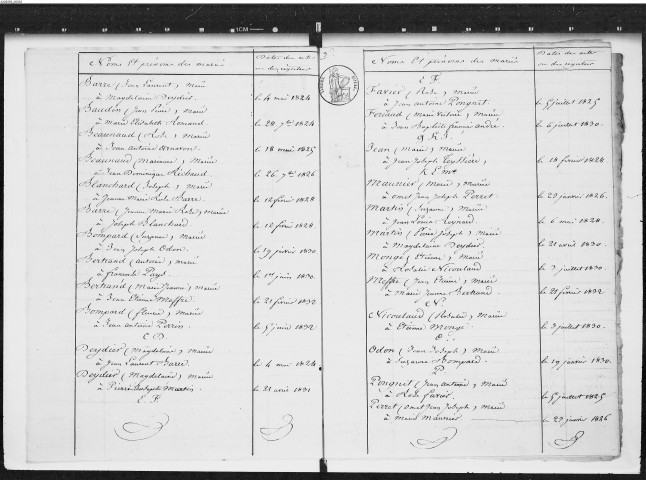 Noms et prénoms des mariés
Dates des actes
ou des registres
Barre (Jean Laurent) marié
à Magdelaine Deydier
le 4 mai 1824
Baudon (Jean Pierre) marié
à marie Elisabeth
le 28 7bre 1824
Beaunaud (Rose) mariée
à Jean Antoine
le 18 mai 1825
Beaunaud (marianne) mariée
à Jean Dominique
le 26 7bre 1826
Blanchard (Joseph) marié
à Jeanne Marie Rose Barre
le 12 février 1828
Barre (Jeanne Marie Rose) mariée
à Joseph Blanchard
le 12 février 1828
Bompard (Suzanne) mariée
à Jean Joseph Odon
le 19 janvier 1830
Bertrand (antoine) marié
à
le 1er juin 1830
Bertrand (Marie Jeanne) mariée
à Jean Etienne Meffre
le 21 février 1832
Bompard ( ) mariée
à Jean antoine Perrin
le 5 1832
C D
Deydier (Magdelaine) mariée
à Jean Laurent Barre
le 4 mai 1824
Deydier (Magdelaine) mariée
à Pierre Joseph Martin
le 21 avril 1830
E F
Noms et prénoms des mariés
Dates des actes
ou des registres
E F
Favier (Rose) mariée
à Jean Antoine Pongnet
le 5 juillet 1825
(Marie ) mariée
à Jean Baptiste andré
le 6 juillet 1830
Jean (marie) mariée
à Jean Joseph
le 18 février 1824
Maunier (Marie) mariée
à Joseph Perret
le 29 janvier 1826
Martin (Suzanne) mariée
à Jean Louis
le 6 mai 1828
Martin (Pierre Joseph) marié
à Magdelaine Deydier
le 21 avril 1830
Monge (Etienne) marié
à Rosalie Nicouland
le 3 juillet 1830
Meffre (Jean Etienne) marié
à Marie Jeanne Bertrand
le 21 février 1832
N
Nicouland (Rosalie) mariée
à Etienne Monge
le 3 juillet 1830
O
Odon (Jean Joseph) marié
à Suzanne Bompard
le 19 janvier 1830
P
Pongnet (Jean Antoine) marié
à Rose Favier
le 5 juillet 1825
Perret ( Joseph) marié
à Marie Maunier
le 29 janvier 1826